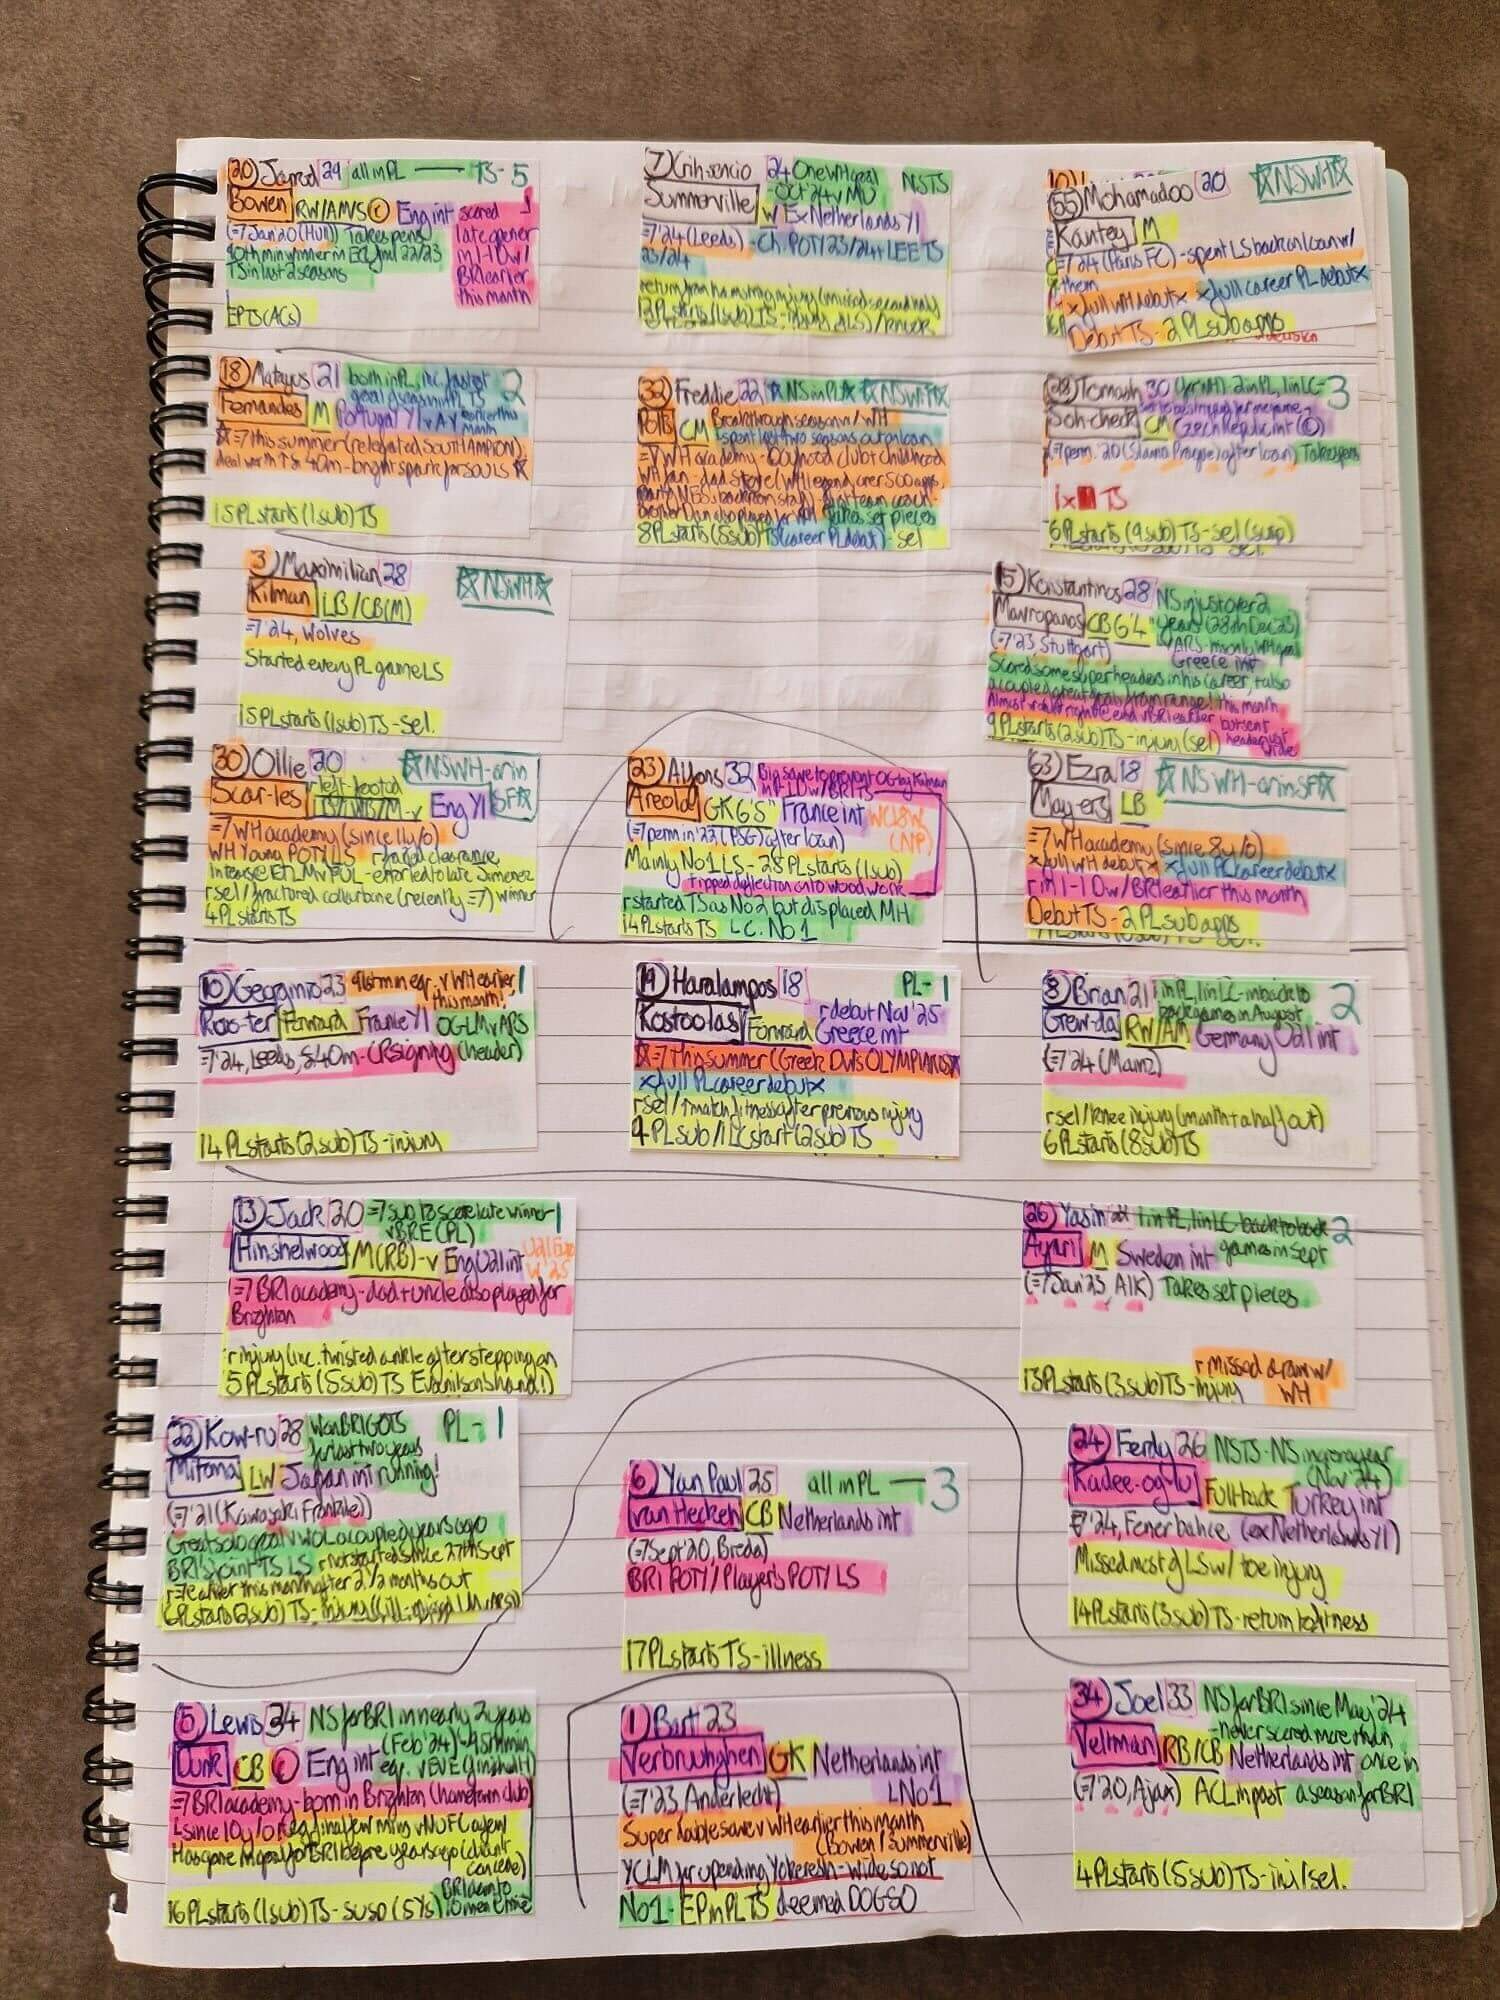 20 Jarrod 29 all in PL — TS - 5
Bowen RW/AM/S C Eng int scored 1
(=7 Jan 20 (HUll) Takes pens late opener
90th min winner in ECL final 22/23 in 1-1 D w/
TS in last 2 seasons BRI earlier
this month
EPTS (ACs)
7 Crih-sencio 24 One WH goal NSTS
Summerville - Oct 24 v MU
W Ex Netherlands YI
=7'24 (Leeds) - Ch. POTY 23/24 + LEE TS
23/24
return from hamstring injury (missed second half)
55 Mohamadoo 20 ☆NSWH☆
Kantey M
=7'24 (Paris FC) - spent LS back on loan w/
them
x full WH debut x x full career PL debut x
Debut TS - 2 PL sub apps
18 Mateus 21 both in PL, inc. fastest 2
Fernandes M Portugal YI v AV earlier this
month
☆=7 this summer (relegated SOUTHAMPTON)
deal worth £40m - bright spark for SOU LS ☆
15 PL starts (1 sub) TS
32 Freddie 22 ☆NS in PL☆ ☆NSWH☆
Potts CM Breakthrough season w/ WH
spent last two seasons out on loan
=7 WH academy - boyhood club + childhood
WH fan - dad Steve (WH legend, over 500 apps,
takes set pieces
8 PL starts (5 sub) TS (career PL debut) - sel
28 Tomash 30 2 in PL, 1 in LC - 3
Soh-check CM Czech Republic int (C)
(=7 perm. 20 (Slavia Prague) after loan) Takes pens
1x TS
6 PL starts (9 sub) TS - sel (susp)
3 Maximilian 28 ☆NSWH☆
Kilman LB/CB (M)
=7'24, Wolves
Started every PL game LS
15 PL starts (1 sub) TS - sel.
15 Konstantinos 28 NS in just over 2
Mavropanos CB 6'4" years (28th Dec 23)
(=7'23, Stuttgart) v ARS - only WH goal
Greece int
Scored some super headers in his career, + also
a couple of great goals from range! this month
Almost v BRI earlier but sent
9 PL starts (2 sub) TS - injury (sel) header just
wide
30 Ollie 20 ☆NSWH - or in
Scar-les r left-footed SF☆
LB/WB/M - v Eng YI
=7 WH academy (since 11 y/o)
WH Young POTY LS
r sel / fractured collarbone (recently =7) winner
4 PL starts TS
23 Alfons 32 Big save to prevent OG by Kilman
in 1-1 D w/ BRI TS
Areola GK 6'5" France int WC18W
(=7 perm in '22 (PSG) after loan) (NP)
Mainly No 1 LS - 28 PL starts (1 sub)
tipped deflection onto woodwork
r started TS as No 2 but displaced MH
14 PL starts TS LC. No 1
63 Ezra 18 ☆NSWH - or in SF☆
May-ers LB
=7 WH academy (since 8 y/o)
x full WH debut x x full PL career debut x
r in 1-1 D w/ BRI earlier this month
Debut TS - 2 PL sub apps
10 Georginio 23 91st min eq. v WH earlier 1
this month!
Roo-ter Forward France YI OG LM v ARS
=7'24, Leeds, £40m - CR signing (header)
14 PL starts (2 sub) TS - injury
19 Haralampos 18 PL - 1
Kostoolas Forward r debut Nov '25
Greece int
☆=7 this summer (Greek DWs OLYMPIAKOS☆
x full PL career debut x
r sel / match fitness after previous injury
4 PL sub / 1 LC start (2 sub) TS
8 Brian 21 1 in PL, 1 in LC - in back to 2
back games in August
Grew-da RW/AM Germany U21 int
(=7'24 (Mainz)
r sel / knee injury (month + a half out)
6 PL starts (8 sub) TS
13 Jack 20 =7 sub to score late winner 1
v BRE (PL)
Hinshelwood M (RB) - v Eng U21 int U21 Euro
W '25
=7 BRI academy - dad + uncle also played for
Brighton
r injury (inc. twisted ankle after stepping on
5 PL starts (5 sub) TS Evanilson's hand!)
26 Yasin 22 1 in PL, 1 in LC - back to back 2
Ayari M Sweden int games in Sept
(=7 Jan '23, AIK) Takes set pieces
r missed draw w/
13 PL starts (3 sub) TS - injury WH
22 Kow-ru 28 Won BRI GOTS PL - 1
for last two years
Mitoma LW Japan int running!
(=7'21 (Kawasaki Frontale))
Great solo goal v WOL a couple of years ago
BRI's joint TS LS r not started since 27th Sept
r =7 earlier this month after 2 1/2 months out
6 PL starts (2 sub) TS - injury
6 Yan Paul 25 all in PL — 3
van Hecken CB Netherlands int
(=7 Sept '20, Breda)
BRI POTY / Player's POTY LS
17 PL starts TS - illness
24 Ferdy 26 NSTS - NS in over a year
(Nov '24)
Kadee-og-lu Fullback Turkey int
=7'24, Fenerbahce (ex Netherlands YI)
Missed most of LS w/ toe injury
14 PL starts (3 sub) TS - return to fitness
5 Lewis 34 NS for BRI in nearly 2 years
(Feb '24) - 95th min
Dunk CB C Eng int eq. v EVE (finished 1-1)
=7 BRI academy - born in Brighton (hometown club)
16 PL starts (1 sub) TS - susp (5 Ys)
1 Bart 23
Verbruhghen GK Netherlands int
(=7'23, Anderlecht) No 1
Super double save v WH earlier this month
(Bowen / Summerville)
YC LM for upending Yokeresh - wide so not
No 1 - EP in PL TS deemed DOGSO
34 Joel 33 NS for BRI since May '24
- never scored more than
Veltman RB/CB Netherlands int once in
(=7'20, Ajax) ACL in past a season for BRI
4 PL starts (5 sub) TS - inj/sel.